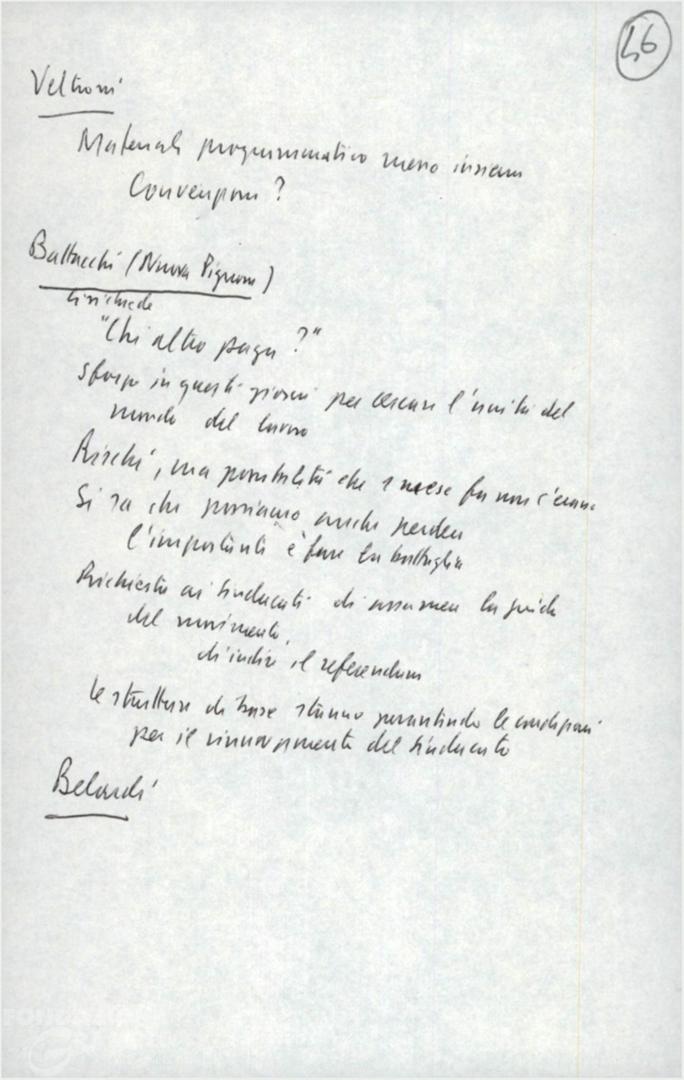 46
Veltroni
Materiali programmatico meno insieme
Convenzioni?
Battacchi (Nuovo Pignone)
si richiede
"Chi altro paga?"
Sforzo in questi giorni per cercare l'unità del
mondo del lavoro
Rischi, ma possibilità che 1 mese fa non c'erano
Si sa che possiamo anche perdere
l'importante è fare la battaglia
Richiesta ai sindacati di assumere la guida
del movimento,
di indire il referendum
le strutture di base stanno garantendo le condizioni
per il rinnovamento del sindacato
Belardi